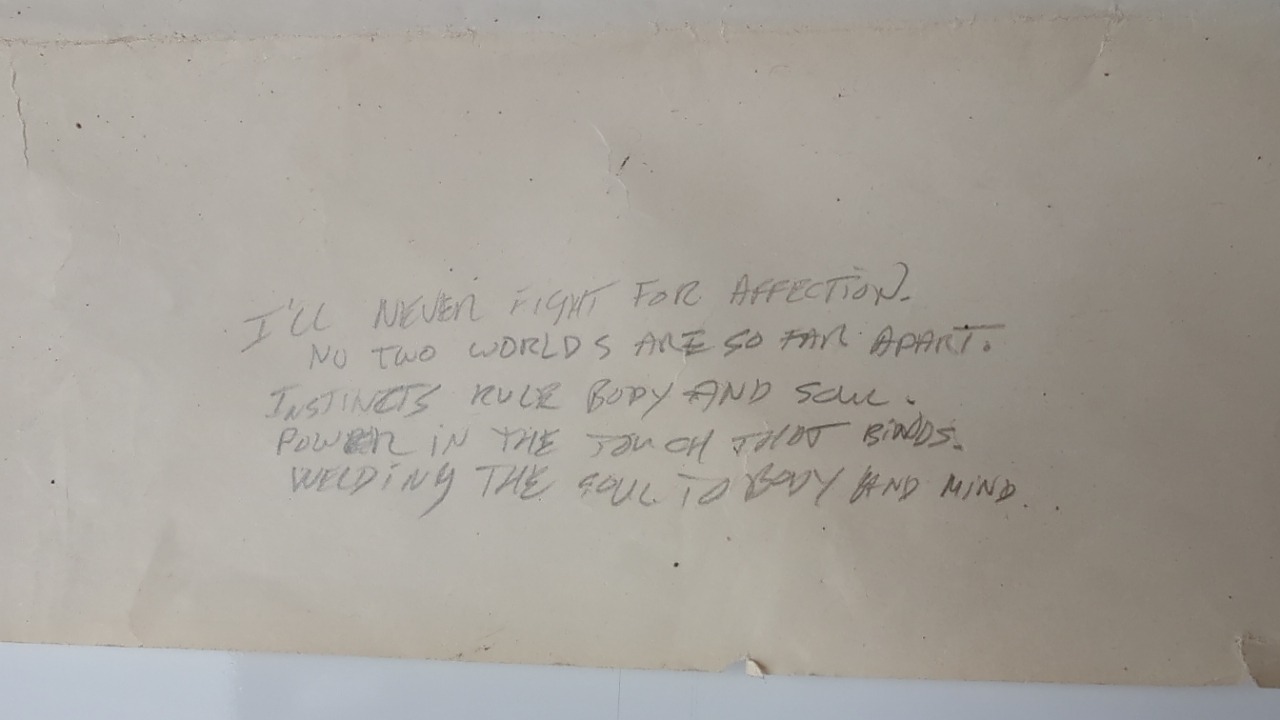 I'LL NEVER FIGHT FOR AFFECTION.
NO TWO WORLDS ARE SO FAR APART.
INSTINCTS RULE BODY AND SOUL.
POWER IN THE TOUCH THAT BINDS.
WELDING THE SOUL TO BODY AND MIND..